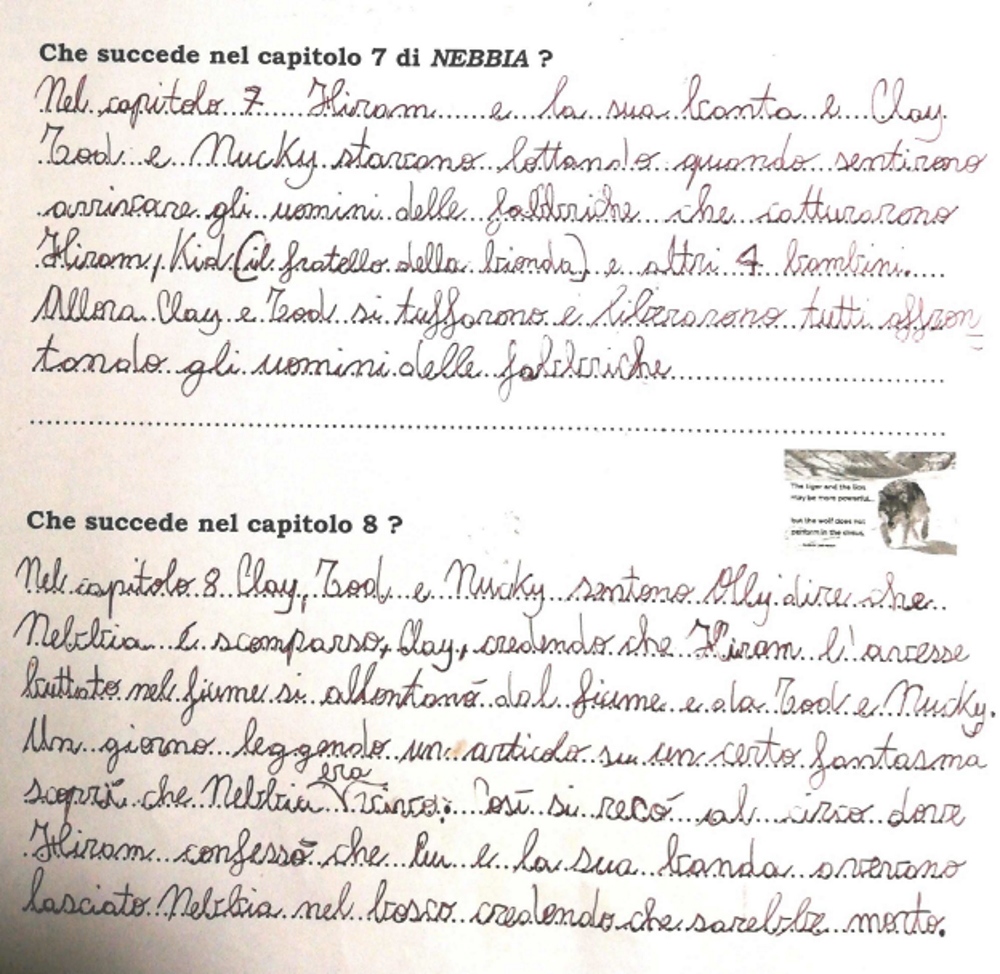 Che succede nel capitolo 7 di NEBBIA ?
Nel capitolo 7 Hiram e la sua banta e Clay
Tod e Nucky stavano lottando quando sentirono
arrivare gli uomini delle fabbriche che catturarono
Hiram, Kid (il fratello della bionda) e altri 4 bambini.
Allora Clay e Tod si tuffarono e liberarono tutti affron
tando gli uomini delle fabbriche
The tiger and the lion
may be more powerful...
but the wolf does not
perform in the circus.
Che succede nel capitolo 8 ?
Nel capitolo 8 Clay, Tod e Nucky sentono Olly dire che
Nebbia é scomparso, Clay, credendo che Hiram l'avesse
buttato nel fiume si allontanó dal fiume e da Tod e Nucky.
Un giorno leggendo un articolo su un certo fantasma
scoprí che Nebbia era vicino. Cosí si recó al circo dove
Hiram confessó che lui e la sua banda avevano
lasciato Nebbia nel bosco credendo che sarebbe morto.